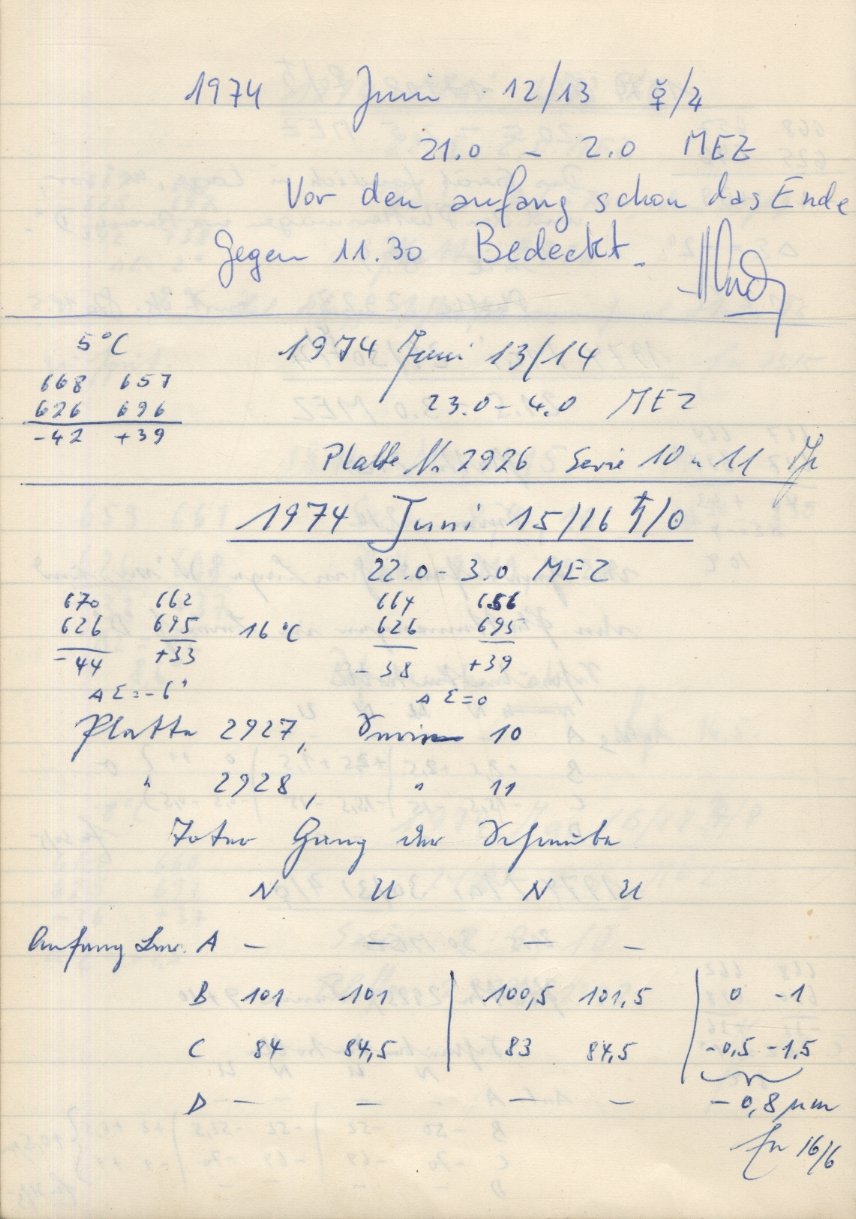 1974 Juni 12/13 ☿/♃
21.0 - 2.0 MEZ
Vor den anfang schon das Ende
Gegen 11.30 Bedeckt.
5°C 1974 Juni 13/14
668 657
626 696 23.0-4.0 MEZ
-42 +39
Platte Nr. 2926 Serie 10 u 11
1974 Juni 15/16 ♄/☉
22.0-3.0 MEZ
670 662 664 656
626 695 16°C 626 695
-44 +33 -38 +39
Δ Σ=-6 Δ Σ=0
Platte 2927, Serie 10
" 2928, " 11
Toter Gang der Schraube
N U N U
Anfang A — — — —
B 101 101 | 100,5 101,5 | 0 -1
C 84 84,5 | 83 84,5 | -0,5 -1,5
D — — — — -0,8 µm
16/6